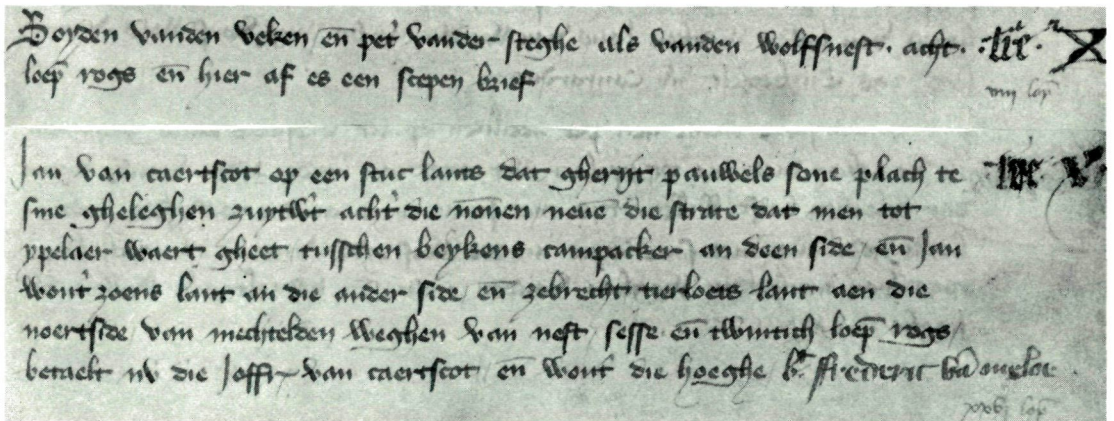 Boyden vanden veken en̄ pet' vander steghe als vanden wolfsnest · acht ·
loep̄ rogs en̄ hier af es een scepen brief
viij lop̄
Jan van caertscot op een stuc lants dat gherijt pauwels sone plach te
sine gheleghen zuytw't acht' die nonen neuē die strate dat men tot
ypelaer waert gheet tusschen beykens campacker an deen side en̄ Jan
wout' zoens lant an die ander side en̄ zebrecht tierloets lant aen die
noertside van mechtelden weghen van nest sesse en̄ twintich loep̄ rogs
betaelt nv die Joffr van caertscot en̄ wout' die hoeghe frederic
xxvj lop̄